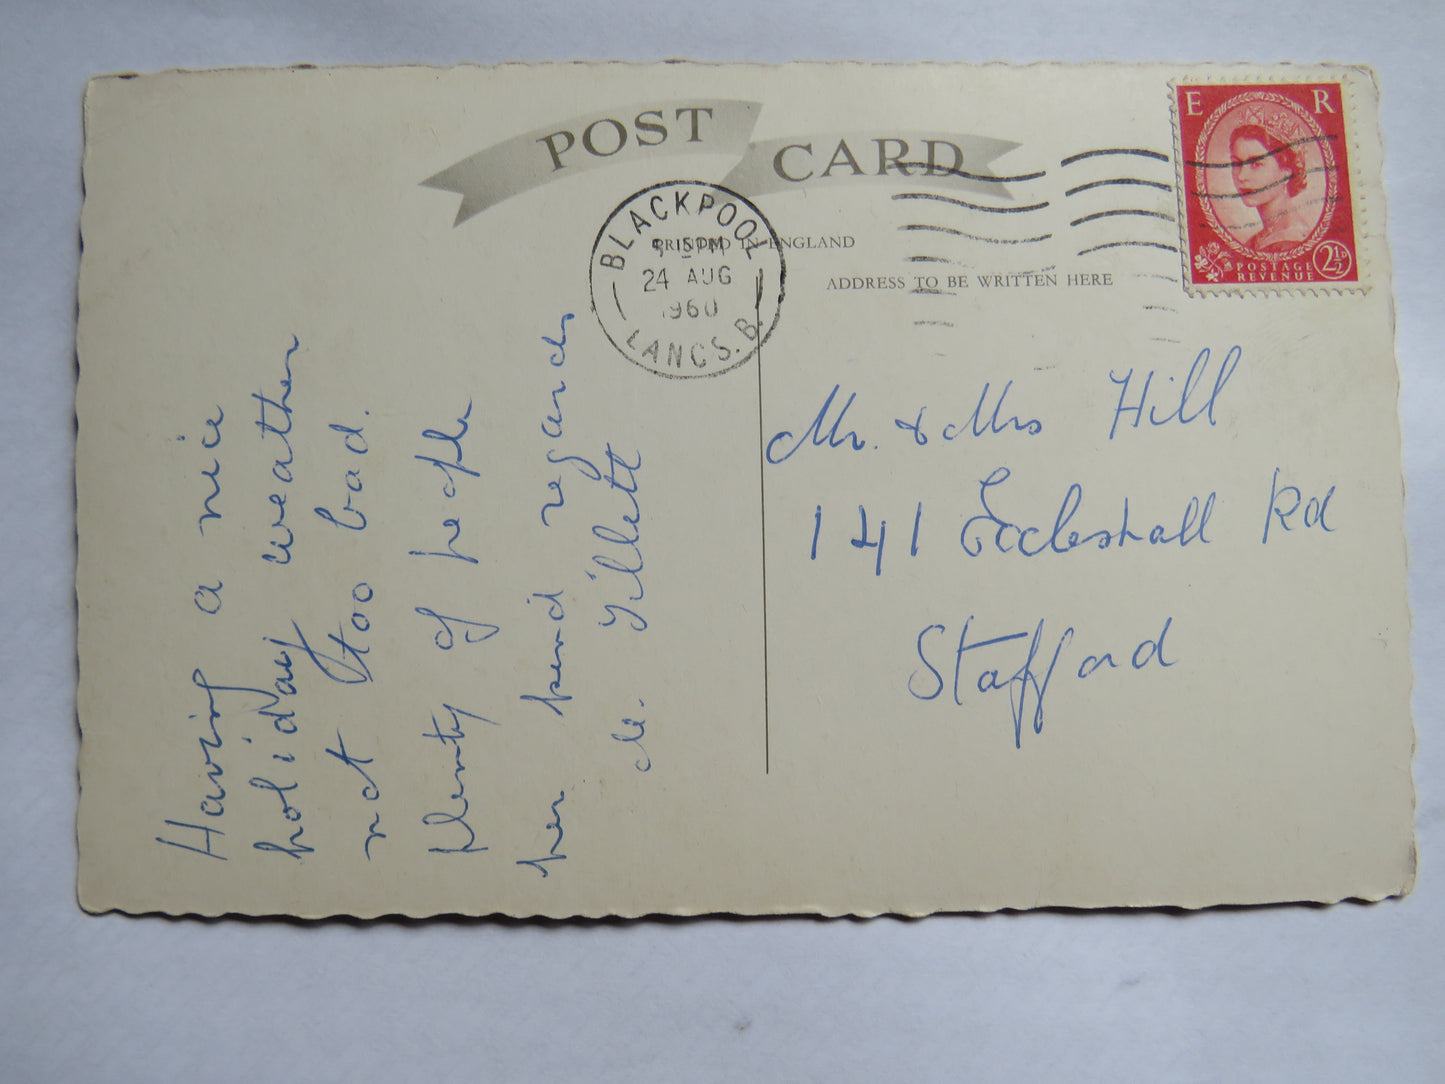 POST CARD
PRINTED IN ENGLAND
ADDRESS TO BE WRITTEN HERE
BLACKPOOL
15PM
24 AUG
1960
LANCS. B.
E R
POSTAGE
REVENUE
2½D
Having a nice
holiday weather
not too bad.
plenty of people
her kind regards
M. Tillett
Mr. & Mrs Hill
141 Eccleshall Rd
Stafford